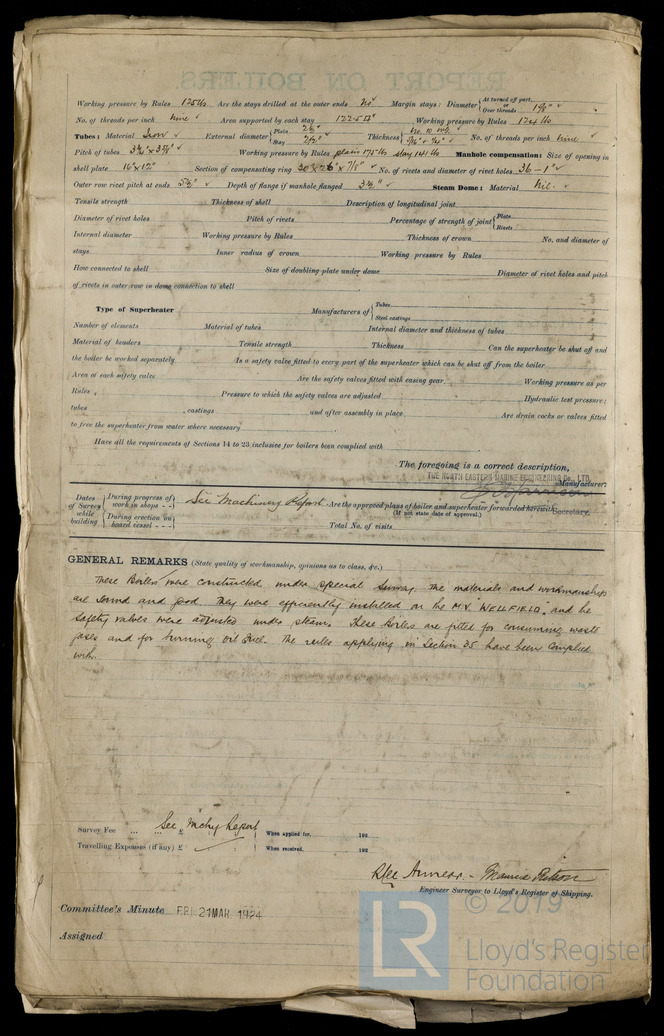 REPORT ON BOILERS.
Working pressure by Rules 125 lb Are the stays drilled at the outer ends No Margin stays: Diameter { At turned off part, or Over threads 1 5/8"
No. of threads per inch nine Area supported by each stay Working pressure by Rules 124 lb
Tubes: Material Iron External diameter { Plain 2½" Stay 2½" Thickness { No. 10 WG. No. of threads per inch nine
Pitch of tubes Working pressure by Rules plain 175 lb stay 141 lb Manhole compensation: Size of opening in
shell plate 16" x 12" Section of compensating ring No. of rivets and diameter of rivet holes 36 - 1"
Outer row rivet pitch at ends Depth of flange if manhole flanged Steam Dome: Material Nil.
Tensile strength Thickness of shell Description of longitudinal joint
Diameter of rivet holes Pitch of rivets Percentage of strength of joint { Plate Rivets
Internal diameter Working pressure by Rules Thickness of crown No. and diameter of
stays Inner radius of crown Working pressure by Rules
How connected to shell Size of doubling plate under dome Diameter of rivet holes and pitch
of rivets in outer row in dome connection to shell
Type of Superheater Manufacturers of { Tubes Steel castings
Number of elements Material of tubes Internal diameter and thickness of tubes
Material of headers Tensile strength Thickness Can the superheater be shut off and
the boiler be worked separately Is a safety valve fitted to every part of the superheater which can be shut off from the boiler
Area of each safety valve Are the safety valves fitted with easing gear Working pressure as per
Rules Pressure to which the safety valves are adjusted Hydraulic test pressure:
tubes , castings and after assembly in place Are drain cocks or valves fitted
to free the superheater from water where necessary
Have all the requirements of Sections 14 to 23 inclusive for boilers been complied with
The foregoing is a correct description,
THE NORTH EASTERN MARINE ENGINEERING Co., LTD.
Manufacturer.
Secretary.
Dates of Survey while building { During progress of work in shops - - } { During erection on board vessel - - - } See Machinery Report Are the approved plans of boiler and superheater forwarded herewith
(If not state date of approval.)
Total No. of visits
GENERAL REMARKS (State quality of workmanship, opinions as to class, &c.)
These Boilers were constructed under special survey. The materials and workmanship
are sound and good. They were efficiently installed on the M.V. "WELLFIELD", and the
safety valves were adjusted under steam. These Boilers are fitted for consuming waste
gases and for burning oil fuel. The rules applying in Section 35 have been complied
with.
Survey Fee ... ... £ See Mchy Report When applied for, 192
Travelling Expenses (if any) £ When received, 192
Engineer Surveyor to Lloyd's Register of Shipping.
Committee's Minute FRI. 21 MAR 1924
Assigned
© 2019
LR
Lloyd's Register
Foundation